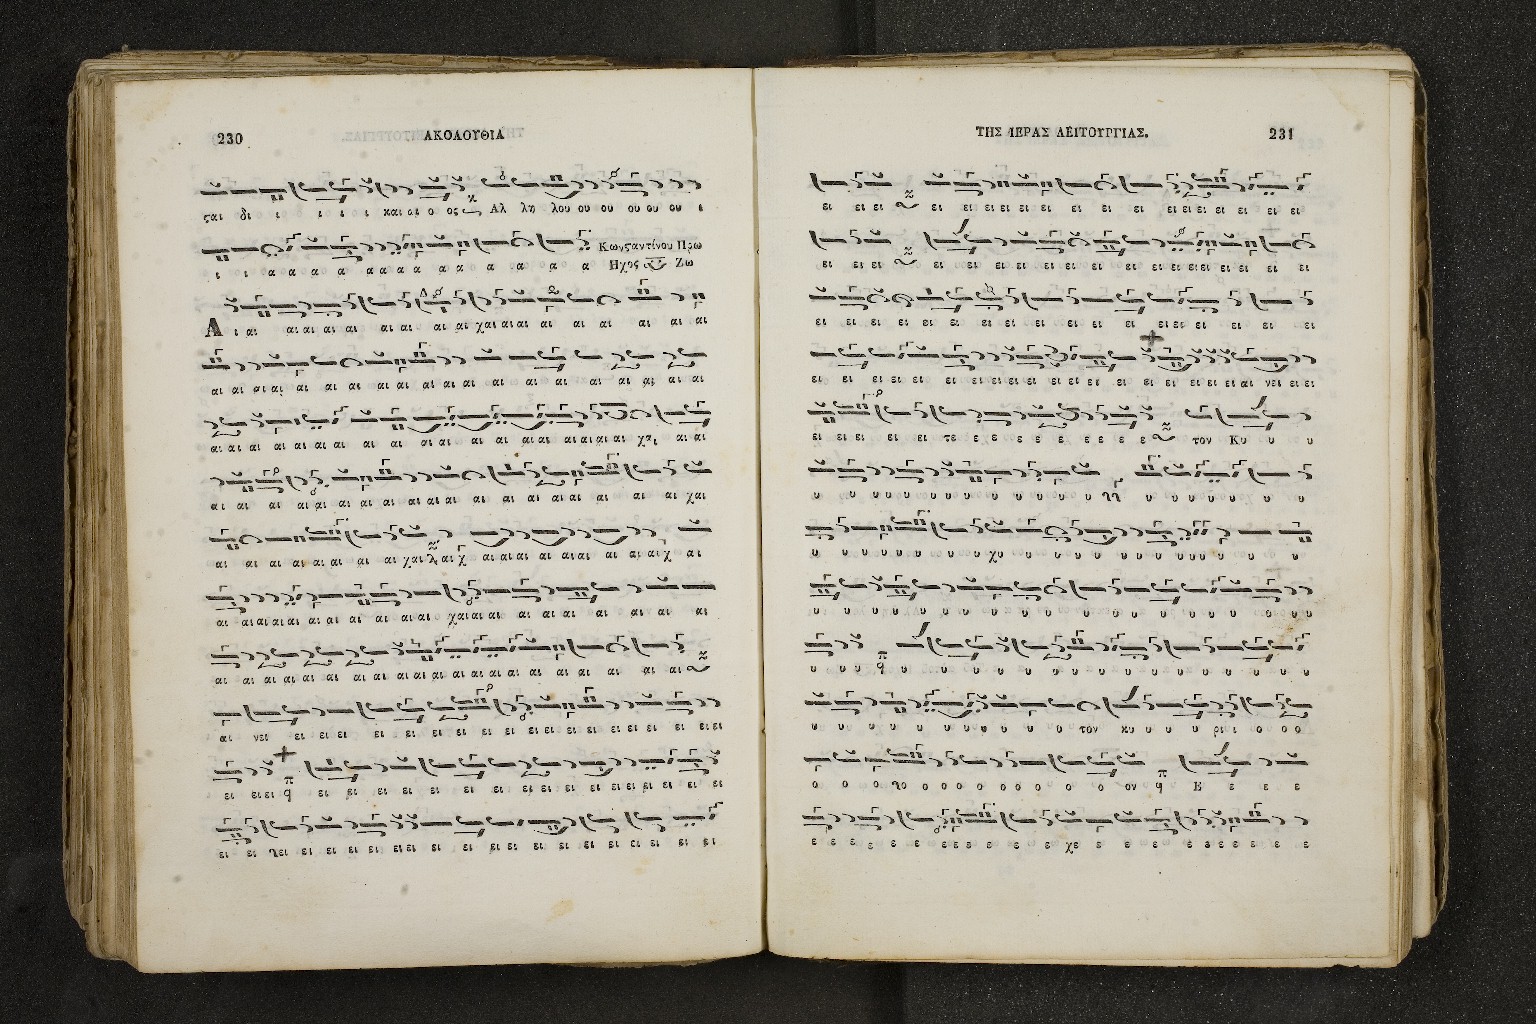 230 ΑΚΟΛΟΥΘΙΑ
ϛαι δι ι ι ι ι και αι ο ος Αλ λη λου ου ου ου ου ου ι
Κωνϛαντίνου Πρω
ι ι α α α α α α α α α α α α α α Ηχος Ζω
Α ι αι αι αι αι αι αι αι αι αι χαι αι αι αι αι αι αι αι αι
αι αι αι αι αι αι αι αι αι αι αι αι αι αι αι αι αι αι
αι αι αι αι αι αι αι αι αι αι αι αι αι αι αι αι αι χαι αι αι
αι αι αι αι αι αι αι αι αι αι αι αι αι αι αι αι αι αι χαι
αι αι αι αι αι αι αι αι χαι αι χ αι αι αι αι αι αι αι αι αι αι χ αι
αι αι αι αι αι αι αι αι αι αι χαι αι αι αι αι αι αι αι αι
αι αι αι αι αι αι αι αι αι αι αι αι αι αι αι αι αι αι αι αι αι
αι νει ει ει ει ει ει ει ει ει ει ει ει ει ει ει ει ει ει ει ει
ει ει ει ει ει ει ει ει ει ει ει ει ει ει ει ει ει ει ει
ει ει χει ει ει ει ει ει ει ει ει ει ει ει ει ει ει ει ει
ΤΗΣ ΙΕΡΑΣ ΛΕΙΤΟΥΡΓΙΑΣ. 231
ει ει ει ει ει ει ει ει ει ει ει ει ει ει ει ει ει ει ει
ει ει ει ει ει ει ει ει ει ει ει ει ει ει ει ει ει ει ει
ει ει ει ει ει ει ει ει ει ει ει ει ει ει ει ει ει ει
ει ει ει ει ει ει ει ει ει ει ει ει ει ει ει ει ει ει ει ει αι νει ει ει
ει ει ει ει ει τε ε ε ε ε ε ε ε ε ε τον Κυ υ υ
υ υ υ υ υ υ υ υ υ υ υ υ υ υ υ υ υ υ υ υ υ υ
υ υ υ υ υ υ υ υ υ χυ υ υ υ υ υ υ υ υ υ υ υ υ υ υ
υ υ υ υ υ υ υ υ υ υ υ υ υ υ υ υ υ υ υ υ υ υ
υ υ υ υ υ υ υ υ υ υ υ υ υ υ υ υ υ υ
υ υ υ υ υ υ υ υ υ υ υ υ τον κυ υ υ υ ρι ι ο ο ο
ο ο ο ο ο ο ο ο ο ο ο ο ο ον Ε ε ε ε
ε ε ε ε ε ε ε ε ε ε ε ε ε χε ε ε ε ε ε ε ε ε ε ε ε